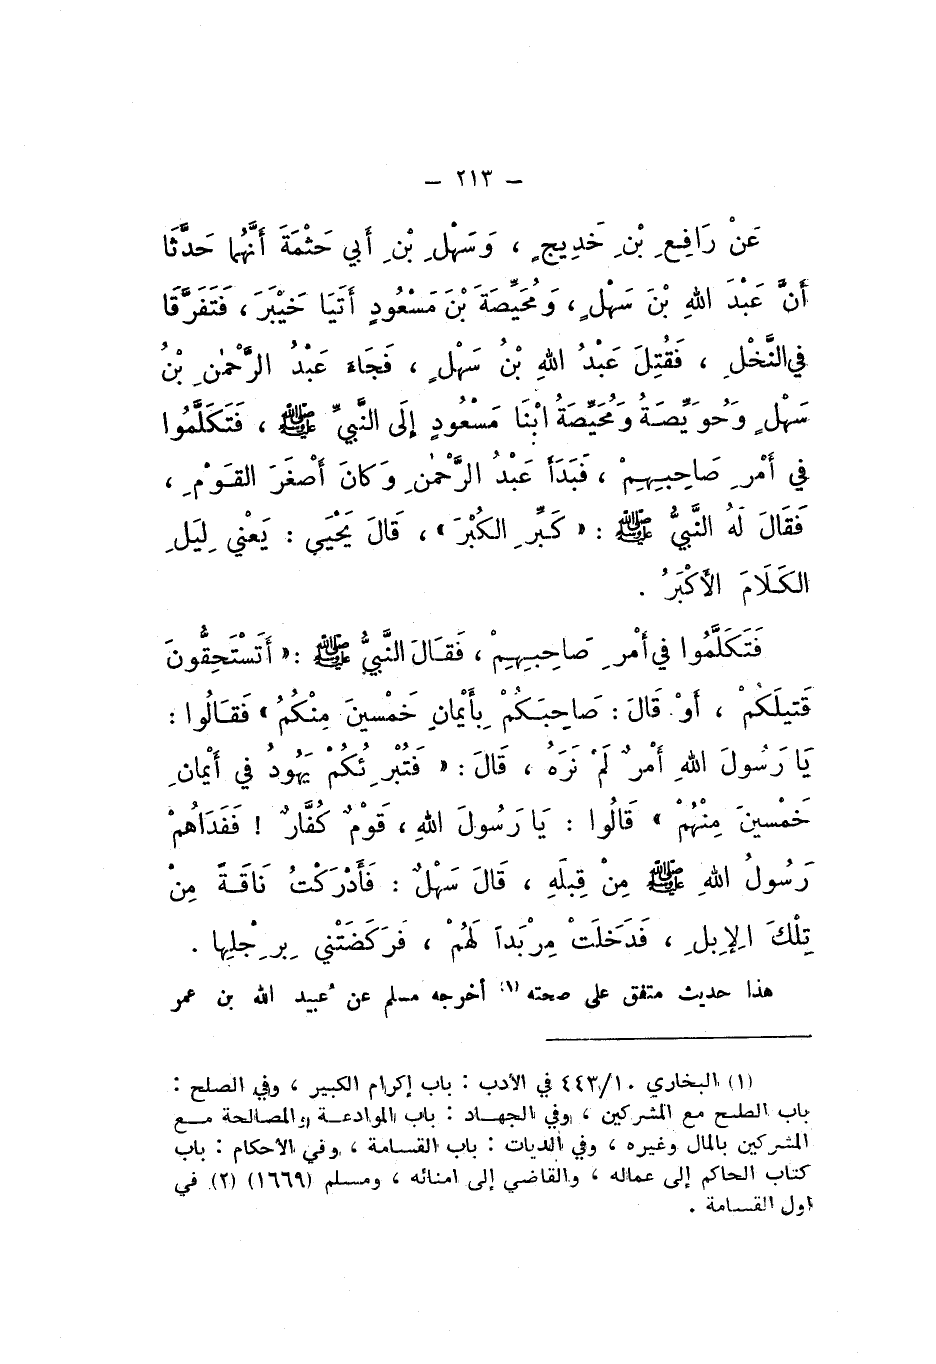 – ٢١٣ –
عَنْ رَافِعِ بْنِ خَدِيجٍ ، وَسَهْلِ بْنِ أَبي حَثْمَةَ أَنَّهُما حَدَّثَا
أَنَّ عَبْدَ اللهِ بْنَ سَهْلٍ ، وَمُحَيِّصَةَ بْنَ مَسْعُودٍ أَتَيَا خَيْبَرَ ، فَتَفَرَّقَا
في النَّخْلِ ، فَقُتِلَ عَبْدُ اللهِ بْنُ سَهْلٍ ، فَجَاءَ عَبْدُ الرَّحْمٰنِ بْنُ
سَهْلٍ وَحُوَيِّصَةُ وَمُحَيِّصَةُ ابْنَا مَسْعُودٍ إِلَى النَّبيِّ ﷺ ، فَتَكَلَّمُوا
في أَمْرِ صَاحِبِهِمْ ، فَبَدَأَ عَبْدُ الرَّحْمٰنِ وَكَانَ أَصْغَرَ القَوْمِ ،
فَقَالَ لَهُ النَّبيُّ ﷺ : « كَبِّرِ الكُبْرَ » ، قَالَ يَحْيَى : يَعْني لِيَلِ
الكَلَامَ الأَكْبَرُ .
فَتَكَلَّمُوا في أَمْرِ صَاحِبِهِمْ ، فَقَالَ النَّبيُّ ﷺ : « أَتَسْتَحِقُّونَ
قَتيلَكُمْ ، أَوْ قَالَ : صَاحِبَكُمْ بِأَيْمَانٍ خَمْسينَ مِنْكُمُ » فَقَالُوا :
يَا رَسُولَ اللهِ أَمْرٌ لَمْ نَرَهُ ، قَالَ : « فَتُبْرِئُكُمْ يَهُودُ في أَيْمَانِ
خَمْسينَ مِنْهُمْ » قَالُوا : يَا رَسُولَ اللهِ ، قَوْمٌ كُفَّارٌ ! فَفَدَاهُمْ
رَسُولُ اللهِ ﷺ مِنْ قِبلَهِ ، قَالَ سَهْلٌ : فَأَدْرَكْتُ نَاقَةً مِنْ
تِلْكَ الإِبِلِ ، فَدَخَلَتْ مِرْبَداً لَهُمْ ، فَرَكَضَتْني بِرِجْلِها .
هذا حديث متفق على صحته (١) أخرجه مسلم عن عُبيد الله بن عمر
(١) البخاري ٤٤٣/١٠ في الأدب : باب إكرام الكبير ، وفي الصلح :
باب الطلح مع المشركين ، وفي الجهاد : باب الموادعة والمصالحة مع
المشركين بالمال وغيره ، وفي الديات : باب القسامة ، وفي الأحكام : باب
كتاب الحاكم إلى عماله ، والقاضي إلى امنائه ، ومسلم (١٦٦٩) (٢) في
اول القسامة .